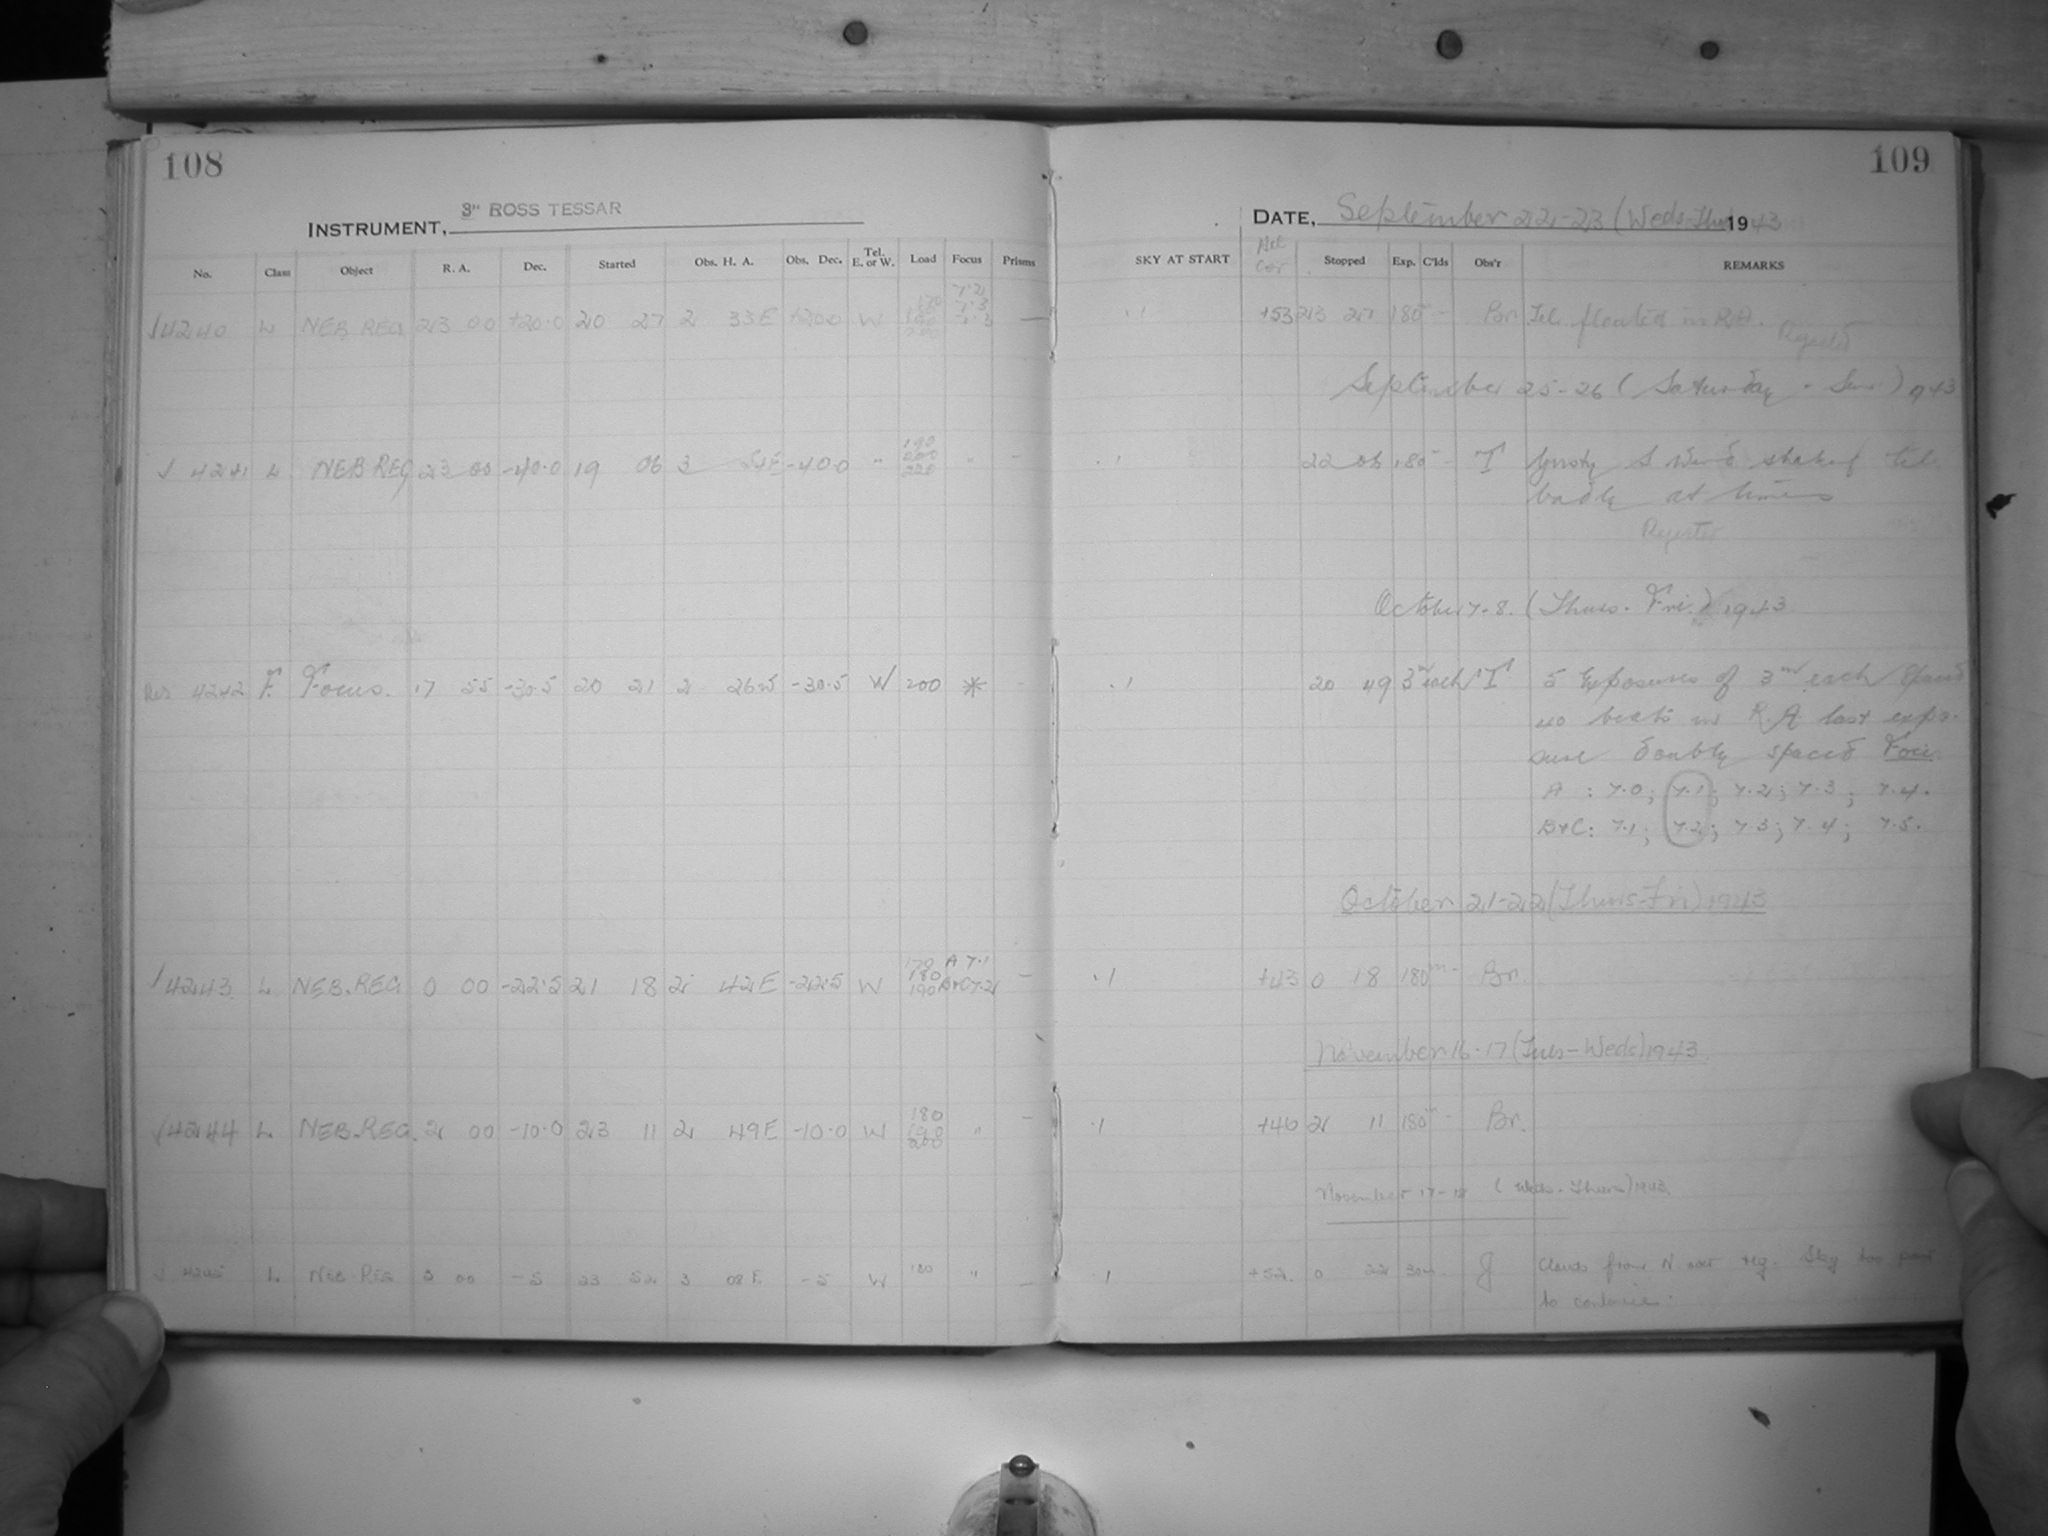 108
INSTRUMENT, 3" ROSS TESSAR
No. Class Object R. A. Dec. Started Obs. H. A. Obs. Dec. Tel. E. or W. Load Focus Prisms
√4240 L NEB REG 23 00 +20.0 20 27 2 33E +20.0 W —
√ 4241 L NEB REG 23 00 -40.0 19 06 3 54E -40.0 " 190 200 220 " -
4242 F. Focus. 17 55 -30.5 20 21 2 26.5 -30.5 W 200 * -
√4243 L NEB.REG. 0 00 -22.5 21 18 2 42E -22.5 W 170 180 190 A 7.1 B+C 7.2 -
√4244 L NEB.REG. 2 00 -10.0 23 11 2 49E -10.0 W 180 190 200 " -
√ 4245 L NEB-REG 3 00 -5 23 52 3 08E -5 W 180 " -
109
DATE, September 22-23 (Weds-Thu) 1943
SKY AT START Stopped Exp. C'lds Obs'r REMARKS
.1 +53 23 27 180 - Br. Tel. floated in R.A. Rejected
September 25-26 (Saturday - Sun) 1943
.1 22 06 180 - T Gusty S Wind shaked tel.
badly at times
Rejected
October 7-8. (Thurs. Fri.) 1943
.1 20 49 3m each T 5 Exposures of 3m each spaced
40 beats in R.A. last expo-
sure doubly spaced Foci
A : 7.0; 7.1; 7.2; 7.3; 7.4.
B+C: 7.1; 7.2; 7.3; 7.4; 7.5.
October 21-22 (Thurs-Fri) 1943
.1 +43 0 18 180m - Br.
November 16-17 (Tues-Weds) 1943
.1 +46 2 11 180m - Br.
November 17-18 (Weds-Thurs) 1943
.1 +52 0 22 30m. J Clouds from N. over reg. Sky too poor
to continue.